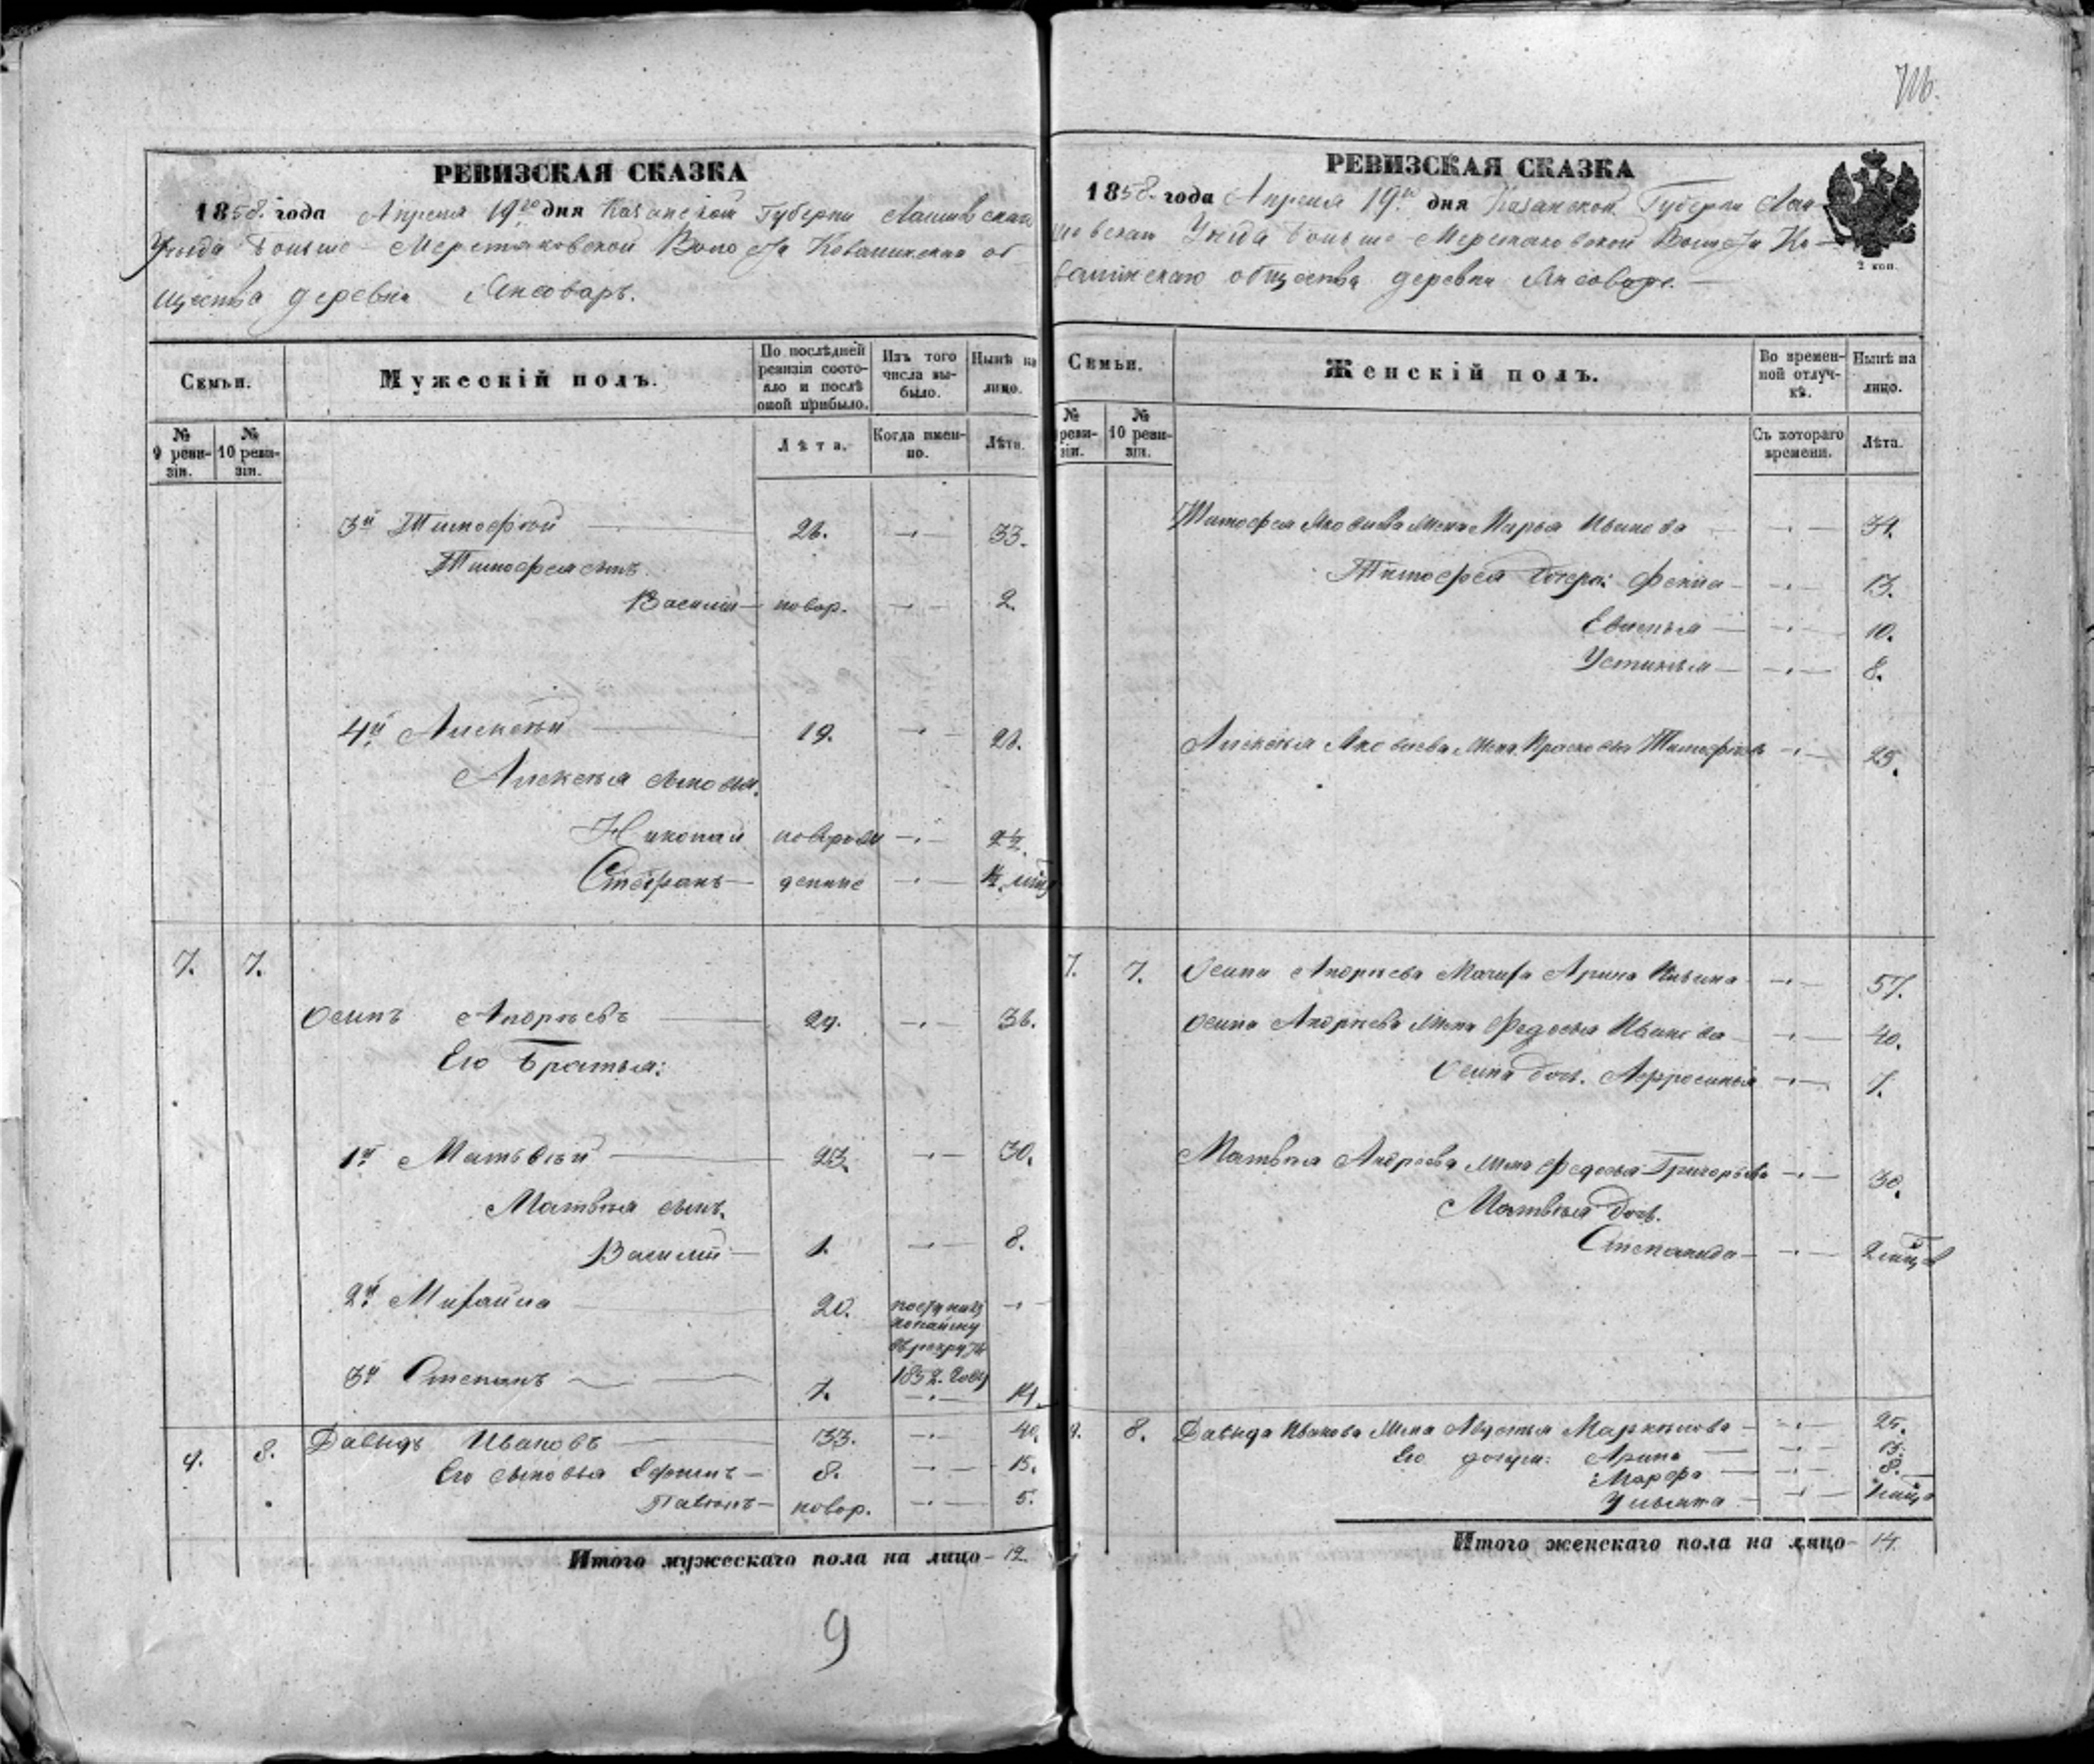 716.
РЕВИЗСКАЯ СКАЗКА
1858. года Апреля 19го дня Казанской Губерни Лаишевскаго
Уезда Больше-Меретяковской Волости Ковалинскаго об
щества деревни Янсоваръ.
Семьи.
Мужескій полъ.
По послѣдней ревизіи состояло и послѣ оной прибыло.
Изъ того числа выбыло.
Нынѣ на лицо.
№ 9 ревизіи.
№ 10 ревизіи.
Лѣта.
Когда именно.
Лѣта.
3й Тимофѣй 26. 33.
Тимофея сынъ
Василій новор. 2.
4й Алексѣй 19. 26.
Алексѣя сыновья.
Николай новорож 2½
Стефанъ денные ½
7. 7.
Осипъ Андрѣевъ 29. 36.
Его Братья:
1й Матьвѣй 23. 30.
Матвѣя сынъ.
Василій 1. 8.
2й Михайла 20.
въ рекруты
1852. году
3й Степанъ 7. 14.
9. 8. Давыдъ Ивановъ 33. 40.
Его сыновья Ефимъ 8. 15.
Павелъ новор. 5.
Итого мужескаго пола на лицо 12.
9
РЕВИЗСКАЯ СКАЗКА
1858. года Апреля 19го дня Казанской Губерни Лаи-
шевскаго Уезда Больше-Меретяковской Волости Ко-
валинскаго общества деревни Янсоваръ.
2 коп.
Семьи.
Женскій полъ.
Во временной отлучкѣ.
Нынѣ на лицо.
№ ревизіи.
№ 10 ревизіи.
Съ котораго времени.
Лѣта.
Тимофея Яковлева жена Марья Иванова 34.
Тимофея дочери: Фекла 13.
Евгенья 10.
Устинья 8.
Алексѣя Яковлева жена Прасковья Тимофѣева 25.
7. 7. Осипа Андрѣева Мачиха Арина 57.
Осипа Андрѣева жена Федосья Иванова 40.
Осипа дочь. Афросинья 7.
Матвѣя Андреева жена Федосья Григорьева 30.
Матвѣя дочь.
Степанида 2 мѣсяц
9. 8. Давыда Иванова жена Авдотья 25.
Его дочери: Арина 13.
Марфа 8.
Ульяна
Итого женскаго пола на лицо 14.